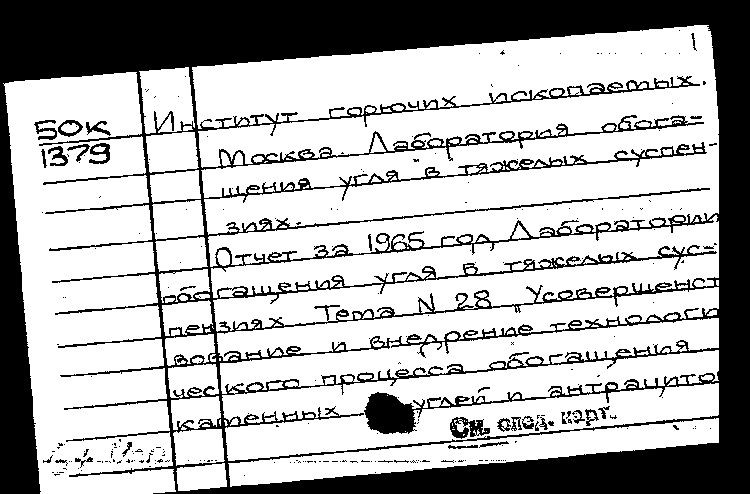 1
50К
1379
Институт горючих ископаемых.
Москва. Лаборатория обога=
щения угля в тяжелых суспен-
зиях.
Отчет за 1965 год, Лаборатории
обогащения угля в тяжелых сус=
пензиях Тема N 28 „Усовершенст
вование и внедрение технологи
ческого процесса обогащения
каменных углей и антрацитов
См. след. карт.